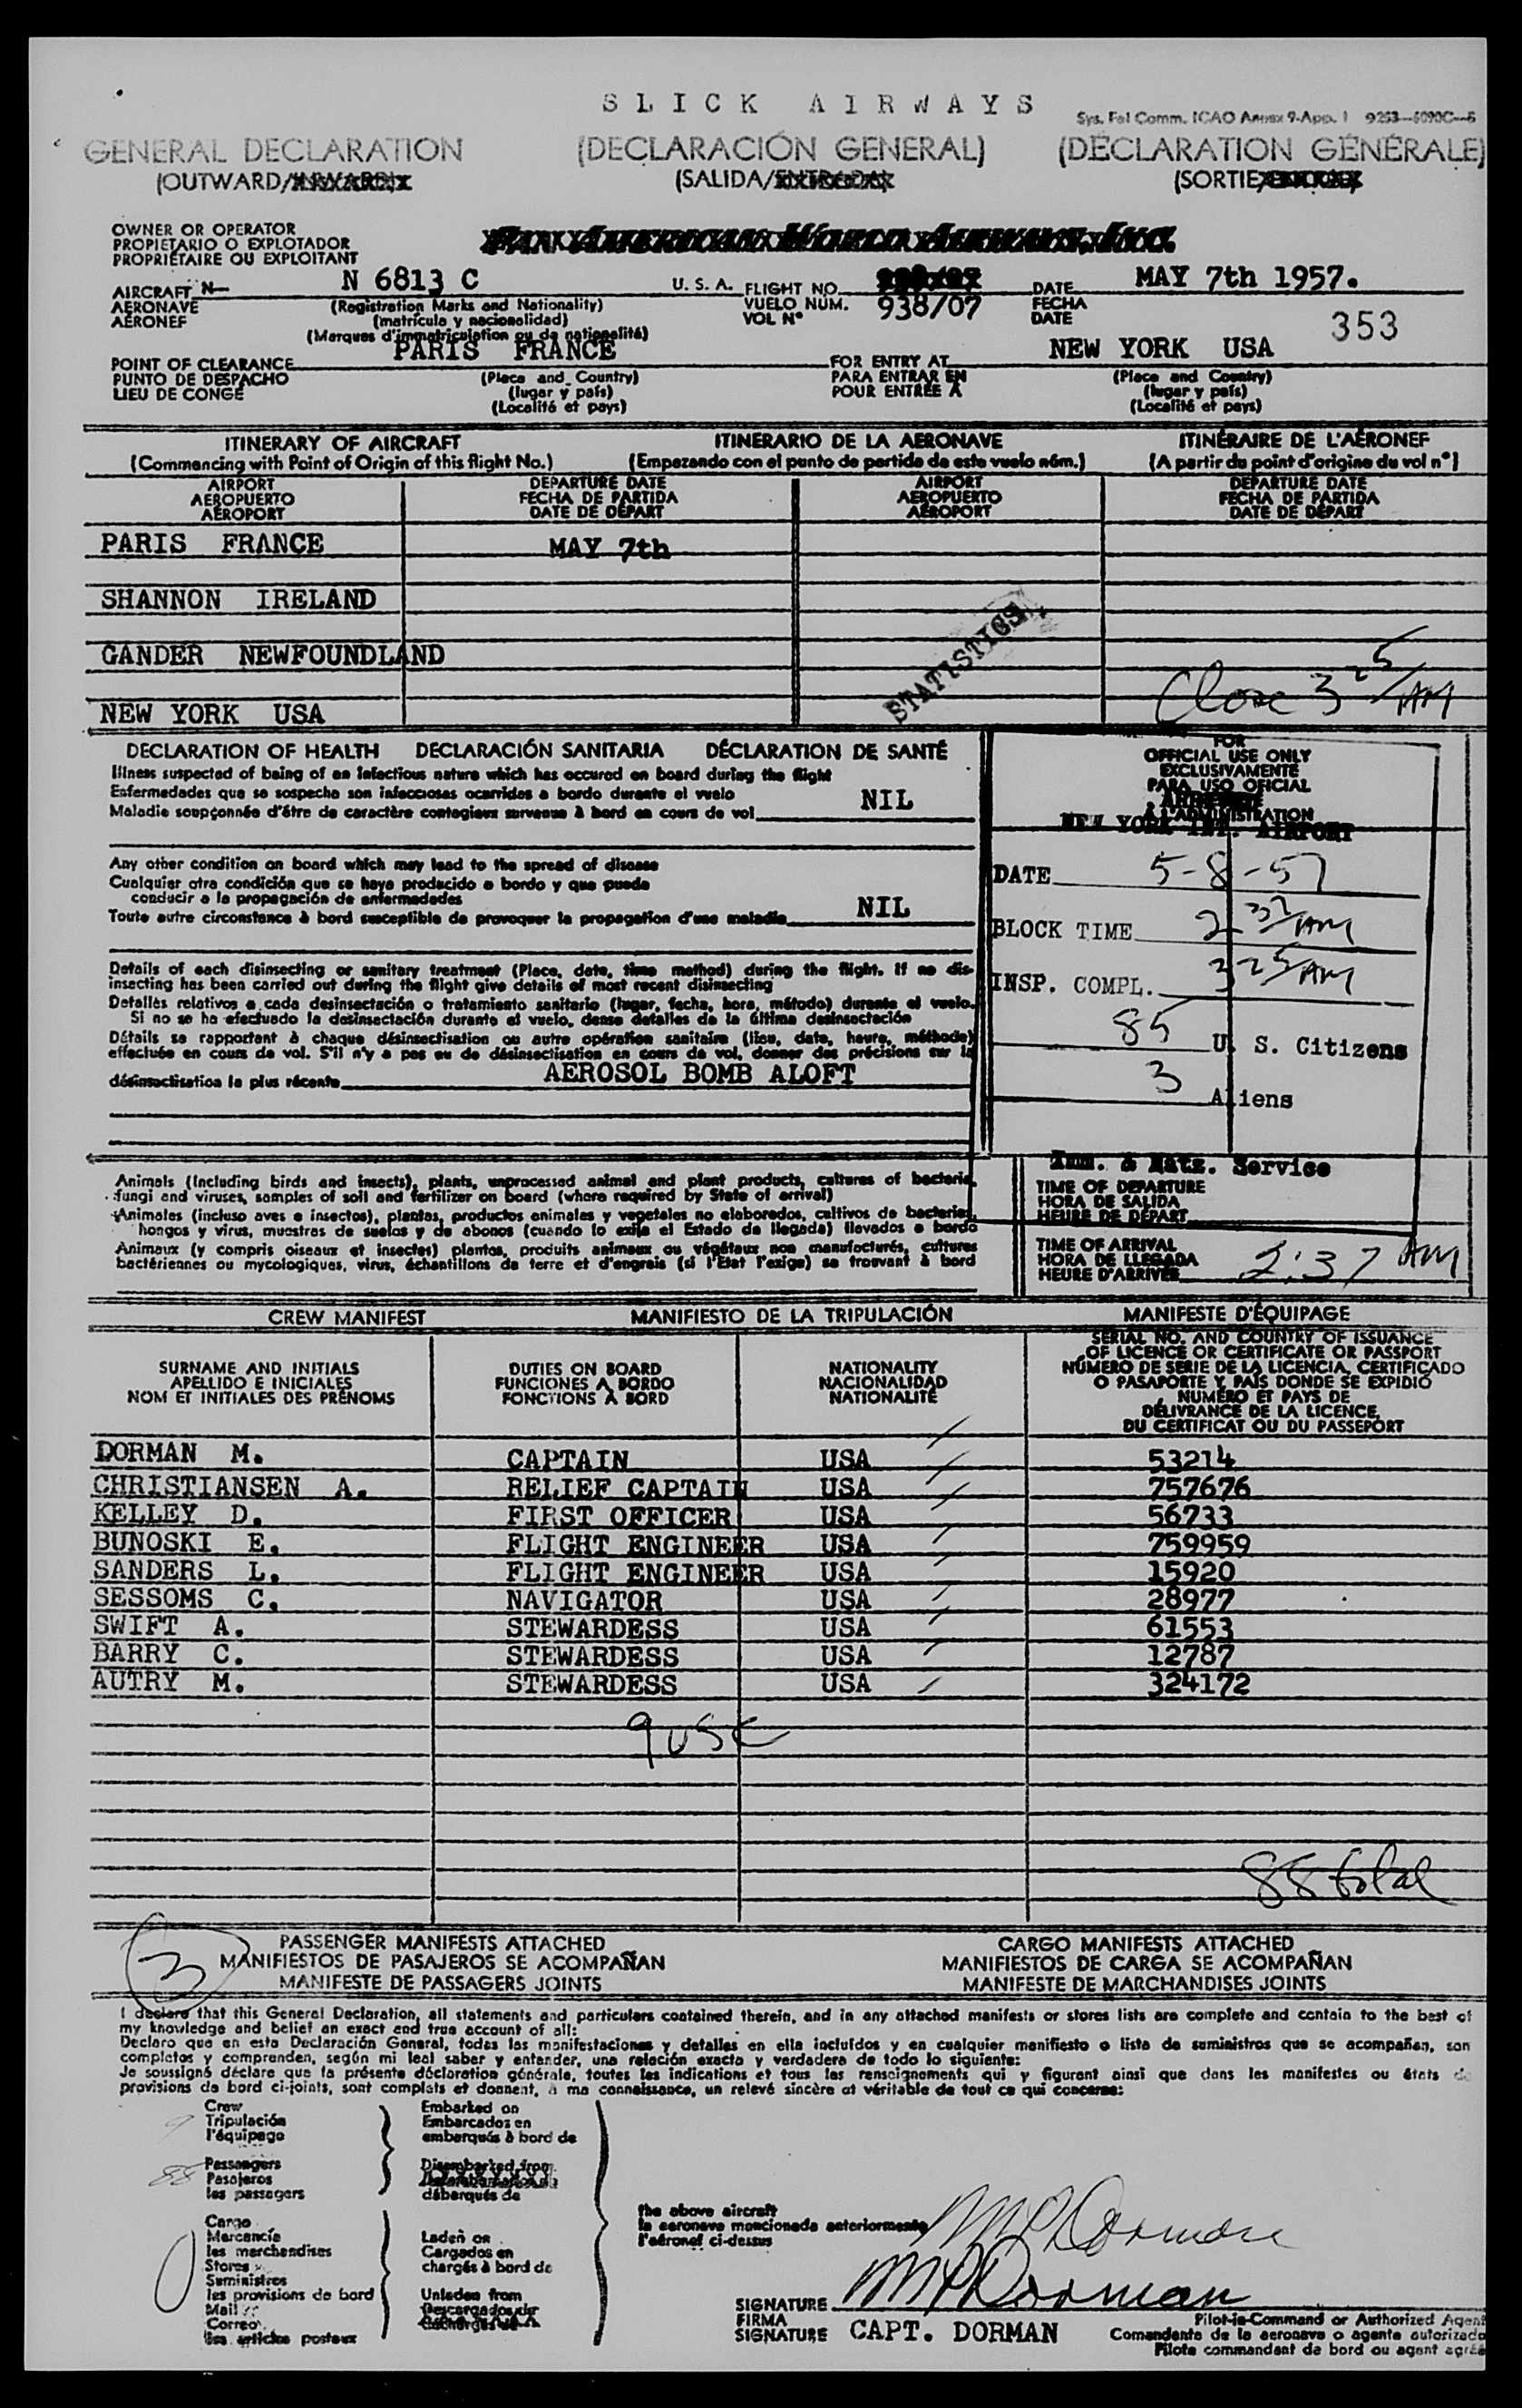 SLICK AIRWAYS
Sys. Fal Comm. ICAO Annex 9-App. 1 9263-6090C-6
GENERAL DECLARATION (DECLARACIÓN GENERAL) (DÉCLARATION GÉNÉRALE)
(OUTWARD/ (SALIDA/ (SORTIE
OWNER OR OPERATOR
PROPIETARIO O EXPLOTADOR
PROPRIÉTAIRE OU EXPLOITANT
PAN AMERICAN WORLD AIRWAYS, INC.
AIRCRAFT N— N 6813 C U. S. A. FLIGHT NO. DATE MAY 7th 1957.
AERONAVE (Registration Marks and Nationality) VUELO NÚM. 938/07 FECHA
AÉRONEF (matrícula y nacionalidad) VOL N° DATE 353
(Marques d'immatriculation ou de nationalité)
POINT OF CLEARANCE PARIS FRANCE FOR ENTRY AT NEW YORK USA
PUNTO DE DESPACHO (Place and Country) PARA ENTRAR EN (Place and Country)
LIEU DE CONGÉ (lugar y país) POUR ENTRÉE À (lugar y país)
(Localité et pays) (Localité et pays)
ITINERARY OF AIRCRAFT ITINERARIO DE LA AERONAVE ITINÉRAIRE DE L'AÉRONEF
(Commencing with Point of Origin of this flight No.) (Empezando con el punto de partida de este vuelo núm.) (A partir du point d'origine du vol n°)
AIRPORT DEPARTURE DATE AIRPORT DEPARTURE DATE
AEROPUERTO FECHA DE PARTIDA AEROPUERTO FECHA DE PARTIDA
AÉROPORT DATE DE DÉPART AÉROPORT DATE DE DÉPART
PARIS FRANCE MAY 7th
SHANNON IRELAND
STATISTICS
GANDER NEWFOUNDLAND
Close 3 25/AM
NEW YORK USA
DECLARATION OF HEALTH DECLARACIÓN SANITARIA DÉCLARATION DE SANTÉ
Illness suspected of being of an infectious nature which has occured on board during the flight
Enfermedades que se sospecha son infecciosas ocurridas a bordo durante el vuelo
Maladie soupçonnée d'être de caractère contagieux survenue à bord en cours de vol NIL
Any other condition on board which may lead to the spread of disease
Cualquier otra condición que se haya producido a bordo y que puede
conducir a la propagación de enfermedades
Toute autre circonstance à bord susceptible de provoquer la propagation d'une maladie NIL
Details of each disinsecting or sanitary treatment (Place, date, time method) during the flight. If no dis-
insecting has been carried out during the flight give details of most recent disinsecting
Detalles relativos a cada desinsectación o tratamiento sanitario (lugar, fecha, hora, método) durante el vuelo.
Si no se ha efectuado la desinsectación durante el vuelo, dense detalles de la última desinsectación
Détails se rapportant à chaque désinsectisation ou autre opération sanitaire (lieu, date, heure, méthode)
effectuée en cours de vol. S'il n'y a pas eu de désinsectisation en cours de vol, donner des précisions sur la
désinsectisation la plus récente AEROSOL BOMB ALOFT
FOR
OFFICIAL USE ONLY
EXCLUSIVAMENTE
PARA USO OFICIAL
À L'ADMINISTRATION
NEW YORK INT. AIRPORT
DATE 5-8-57
BLOCK TIME 2 37/AM
INSP. COMPL. 3 25/AM
85 U. S. Citizens
3 Aliens
Imm. & Natz. Service
Animals (Including birds and insects), plants, unprocessed animal and plant products, cultures of bacteria,
fungi and viruses, samples of soil and fertilizer on board (where required by State of arrival)
Animales (incluso aves e insectos), plantas, productos animales y vegetales no elaborados, cultivos de bacterias,
hongos y virus, muestras de suelos y de abonos (cuando lo exija el Estado de llegada) llevados a bordo
Animaux (y compris oiseaux et insectes) plantes, produits animaux ou végétaux non manufacturés, cultures
bactériennes ou mycologiques, virus, échantillons de terre et d'engrais (si l'Etat l'exige) se trouvant à bord
TIME OF DEPARTURE
HORA DE SALIDA
HEURE DE DÉPART
TIME OF ARRIVAL
HORA DE LLEGADA
HEURE D'ARRIVÉE 2:37 AM
CREW MANIFEST MANIFIESTO DE LA TRIPULACIÓN MANIFESTE D'ÉQUIPAGE
SURNAME AND INITIALS
APELLIDO E INICIALES
NOM ET INITIALES DES PRÉNOMS
DUTIES ON BOARD
FUNCIONES A BORDO
FONCTIONS À BORD
NATIONALITY
NACIONALIDAD
NATIONALITÉ
SERIAL NO. AND COUNTRY OF ISSUANCE
OF LICENCE OR CERTIFICATE OR PASSPORT
NÚMERO DE SERIE DE LA LICENCIA, CERTIFICADO
O PASAPORTE Y PAÍS DONDE SE EXPIDIÓ
NUMÉRO ET PAYS DE
DÉLIVRANCE DE LA LICENCE,
DU CERTIFICAT OU DU PASSEPORT
DORMAN M. CAPTAIN USA 53214
CHRISTIANSEN A. RELIEF CAPTAIN USA 757676
KELLEY D. FIRST OFFICER USA 56733
BUNOSKI E. FLIGHT ENGINEER USA 759959
SANDERS L. FLIGHT ENGINEER USA 15920
SESSOMS C. NAVIGATOR USA 28977
SWIFT A. STEWARDESS USA 61553
BARRY C. STEWARDESS USA 12787
AUTRY M. STEWARDESS USA 324172
9 USC
88 total
3
PASSENGER MANIFESTS ATTACHED CARGO MANIFESTS ATTACHED
MANIFIESTOS DE PASAJEROS SE ACOMPAÑAN MANIFIESTOS DE CARGA SE ACOMPAÑAN
MANIFESTE DE PASSAGERS JOINTS MANIFESTE DE MARCHANDISES JOINTS
I declare that this General Declaration, all statements and particulars contained therein, and in any attached manifests or stores lists are complete and contain to the best of
my knowledge and belief an exact and true account of all:
Declaro que en esta Declaración General, todas las manifestaciones y detalles en ella incluídos y en cualquier manifiesto o lista de suministros que se acompañan, son
completos y comprenden, según mi leal saber y entender, una relación exacta y verdadera de todo lo siguiente:
Je soussigné déclare que la présente déclaration générale, toutes les indications et tous les renseignements qui y figurent ainsi que dans les manifestes ou états de
provisions de bord ci-joints, sont complets et donnent, à ma connaissance, un relevé sincère et véritable de tout ce qui concerne:
9 Crew
Tripulación
l'équipage
88 Passengers
Pasajeros
les passagers
0 Cargo
Mercancía
les marchandises
Stores
Suministros
les provisions de bord
Mail
Correo
les articles postaux
Embarked on
Embarcados en
embarqués à bord de
Disembarked from
débarqués de
Laden on
Cargados en
chargés à bord de
Unladen from
Descargados de
the above aircraft
la aeronave mencionada anteriormente
l'aéronef ci-dessus
MP Dorman
MP Dorman
SIGNATURE
FIRMA
SIGNATURE CAPT. DORMAN
Pilot-in-Command or Authorized Agent
Comandante de la aeronave o agente autorizado
Pilote commandant de bord ou agent agréé